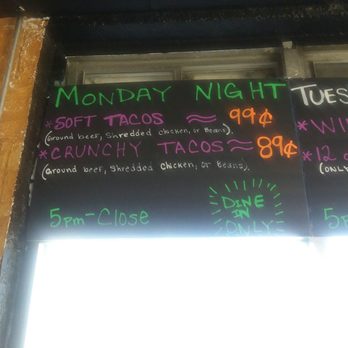 MONDAY NIGHT
*SOFT TACOS ≈ 99¢
(Ground beef, shredded chicken, or Beans).
*CRUNCHY TACOS ≈ 89¢
(Ground beef, Shredded Chicken, or Beans).
5pm-Close
DINE
IN
ONLY
TUES
*WI
*12
(ONLY
5p